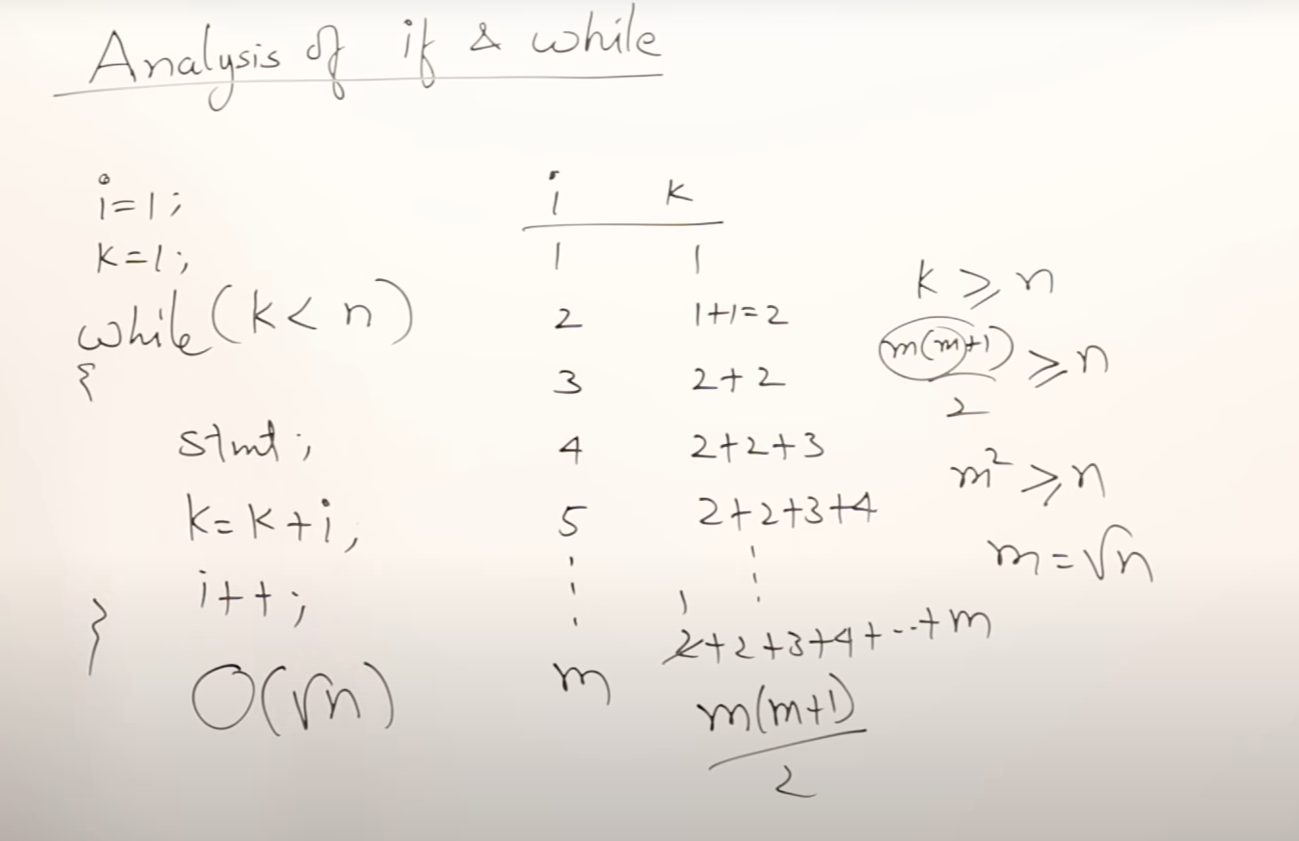 Analysis of if & while
i=1;
k=1;
while(k<n)
{
stmt;
k=k+i;
i++;
}
O(√n)
i k
1 1
2 1+1=2
3 2+2
4 2+2+3
5 2+2+3+4
⋮ ⋮
1
m 2+2+3+4+--+m
m(m+1)
2
k ≥ n
m(m+1) ≥ n
2
m² ≥ n
m = √n